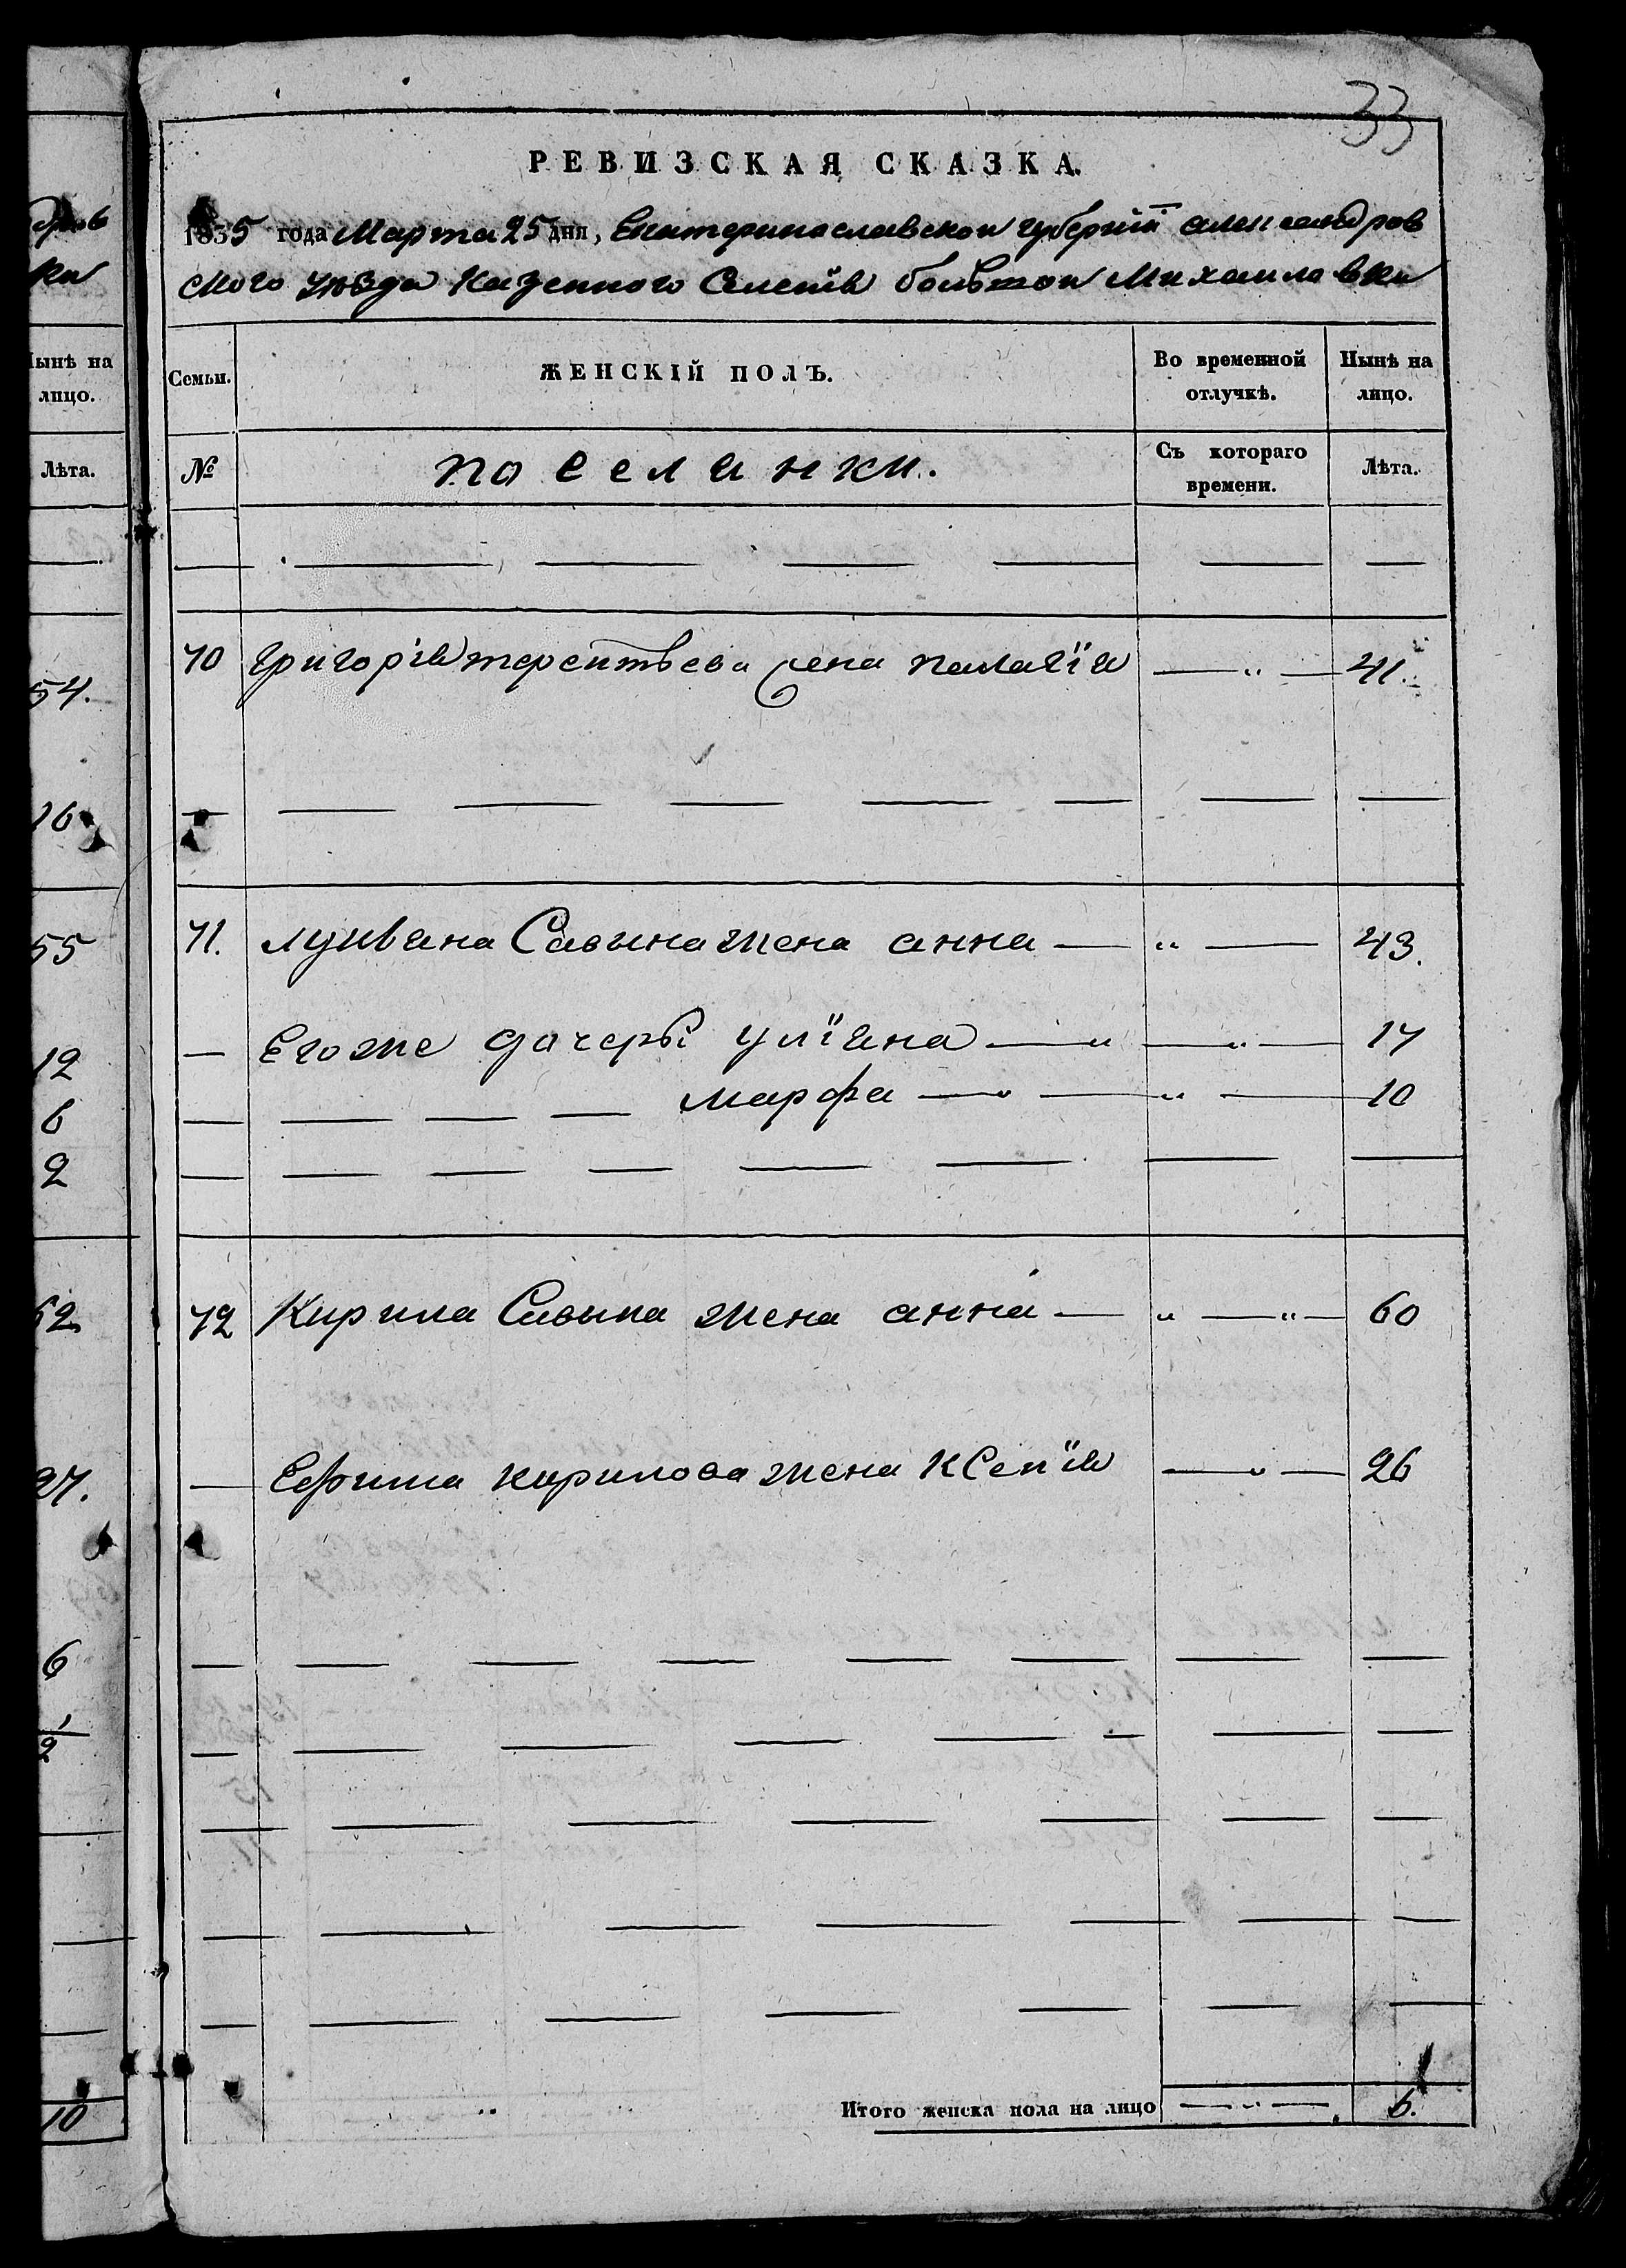 33
РЕВИЗСКАЯ СКАЗКА.
1835 года Марта 25 дня, Екатеринославской губернїи александров
ского уѣзда Казенного Селенїя большой Михаиловки
Семьи. ЖЕНСКІЙ ПОЛЪ. Во временной отлучкѣ. Нынѣ на лицо.
№ поселянки. Съ котораго времени. Лѣта.
70 Григорїя терентьева жена палагїя — „ — 41.
71. лукїяна Савина жена анна — „ — 43.
— Егоже дочеры улїяна — „ — „ — 17
— — — — марфа — „ — „ — 10
72 Кирила Савына жена анна — „ — „ — 60
— Ефима кирилова жена Ксенїя — „ — 26
Итого женска пола на лицо — „ — 6.
дров
ки
Нынѣ на
лицо.
Лѣта.
54.
16
55
12
6
2
52
27.
6
1/2
10